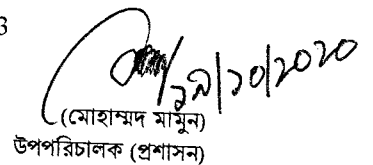 3
১৯/১০/২০২০
(মোহাম্মদ মামুন)
উপপরিচালক (প্রশাসন)